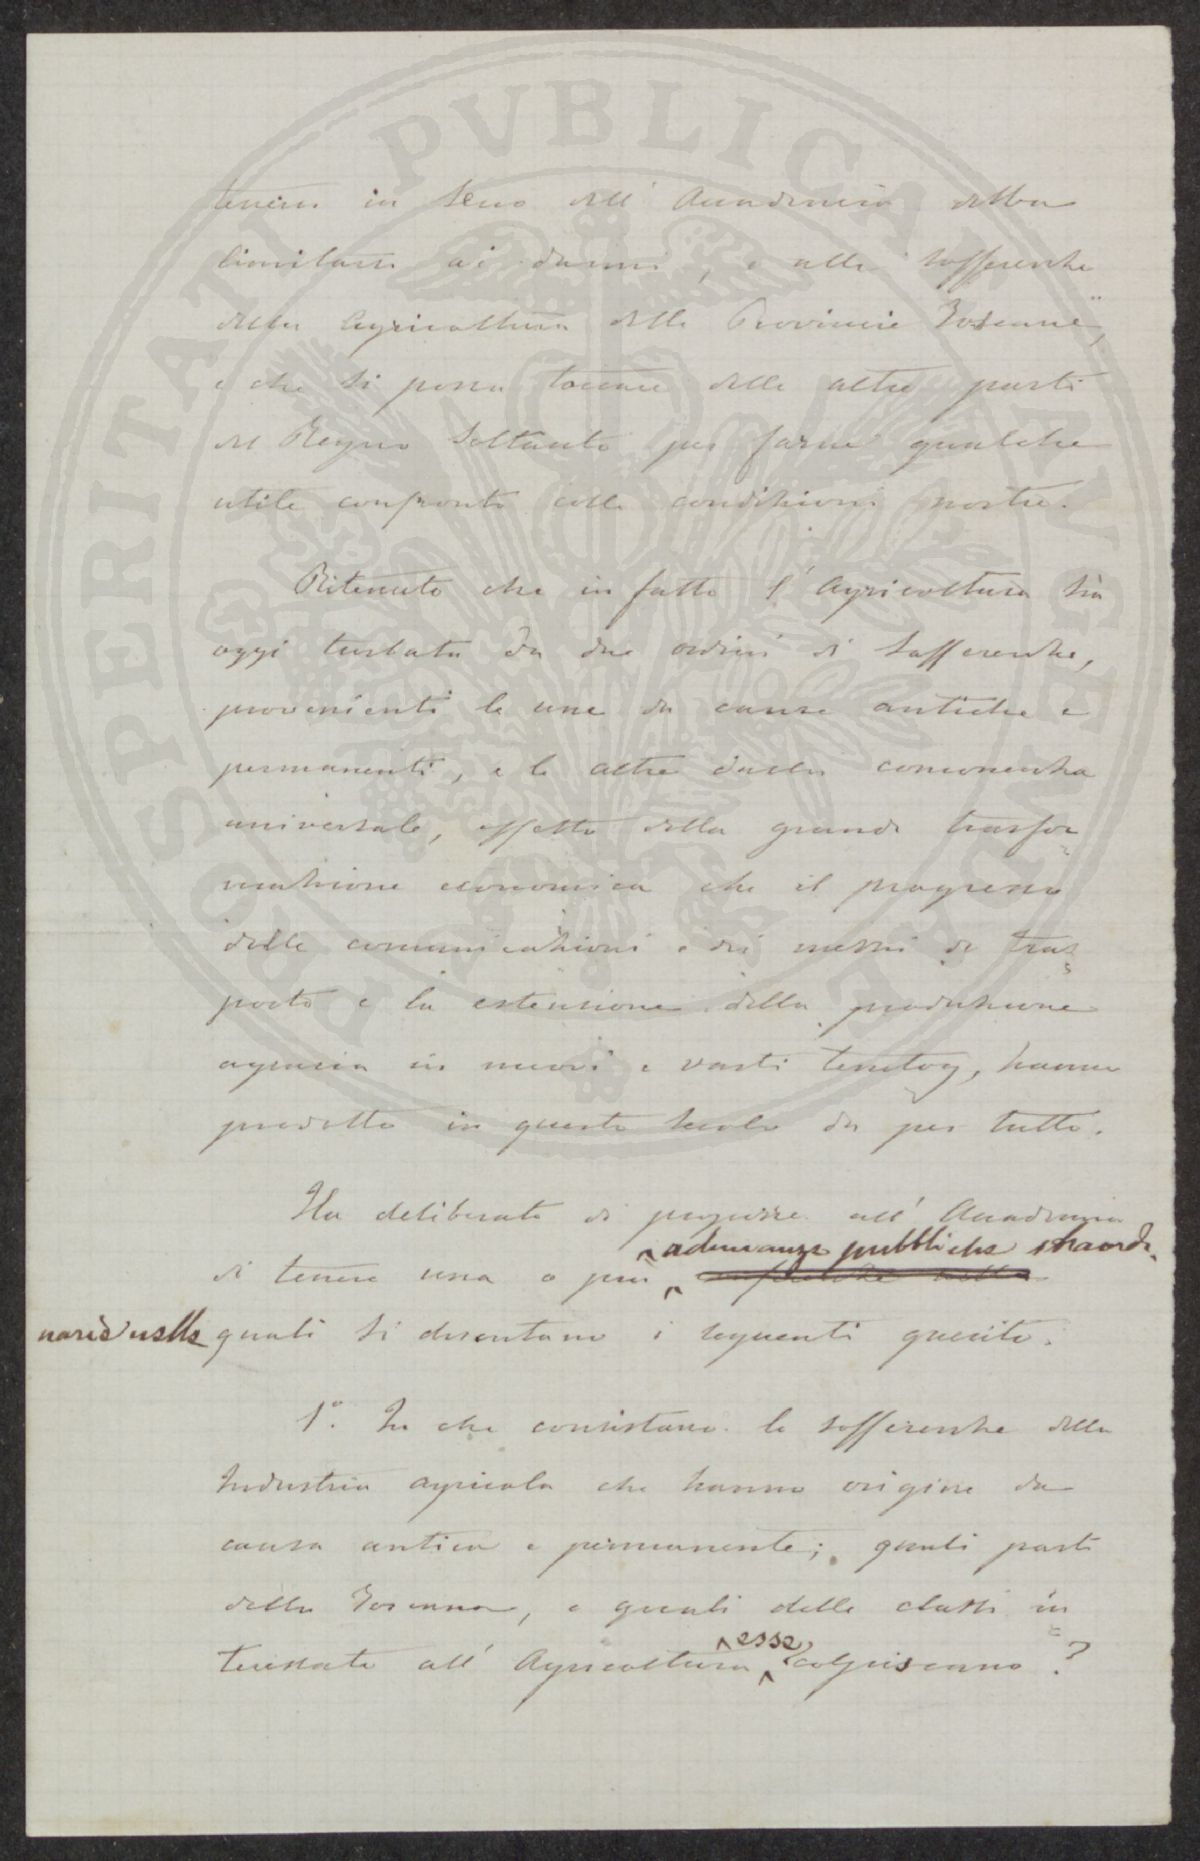 PROSPERITATI PVBLICAE AVGENDAE
tenersi in seno dell' Accademia debba
limitarsi ai danni, e alle sofferenze
della Agricoltura delle Provincie Toscane,
e che si possa toccare delle altre parti
del Regno soltanto per farne qualche
utile confronto colle condizioni nostre.
Ritenuto che in fatto l' Agricoltura sia
oggi turbata da due ordini di sofferenze,
provenienti le une da cause antiche e
permanenti, e le altre dalla concorrenza
universale, effetto della grande trasfor
mazione economica che il progresso
delle comunicazioni e dei mezzi di tras
porto e la estensione della produzione
agraria in nuovi e vasti territorj, hanno
prodotto in questo secolo da per tutto.
Ha deliberato di proporre all' Accademia
adunanze pubbliche straordi
di tenere una o più conferenze nelle
narie nelle quali si discutano i seguenti quesiti.
1°. In che consistano le sofferenze della
Industria agricola che hanno origine da
causa antica e permanente; quali parti
della Toscana, e quali delle classi in
teressate all' Agricoltura esse colpiscano?